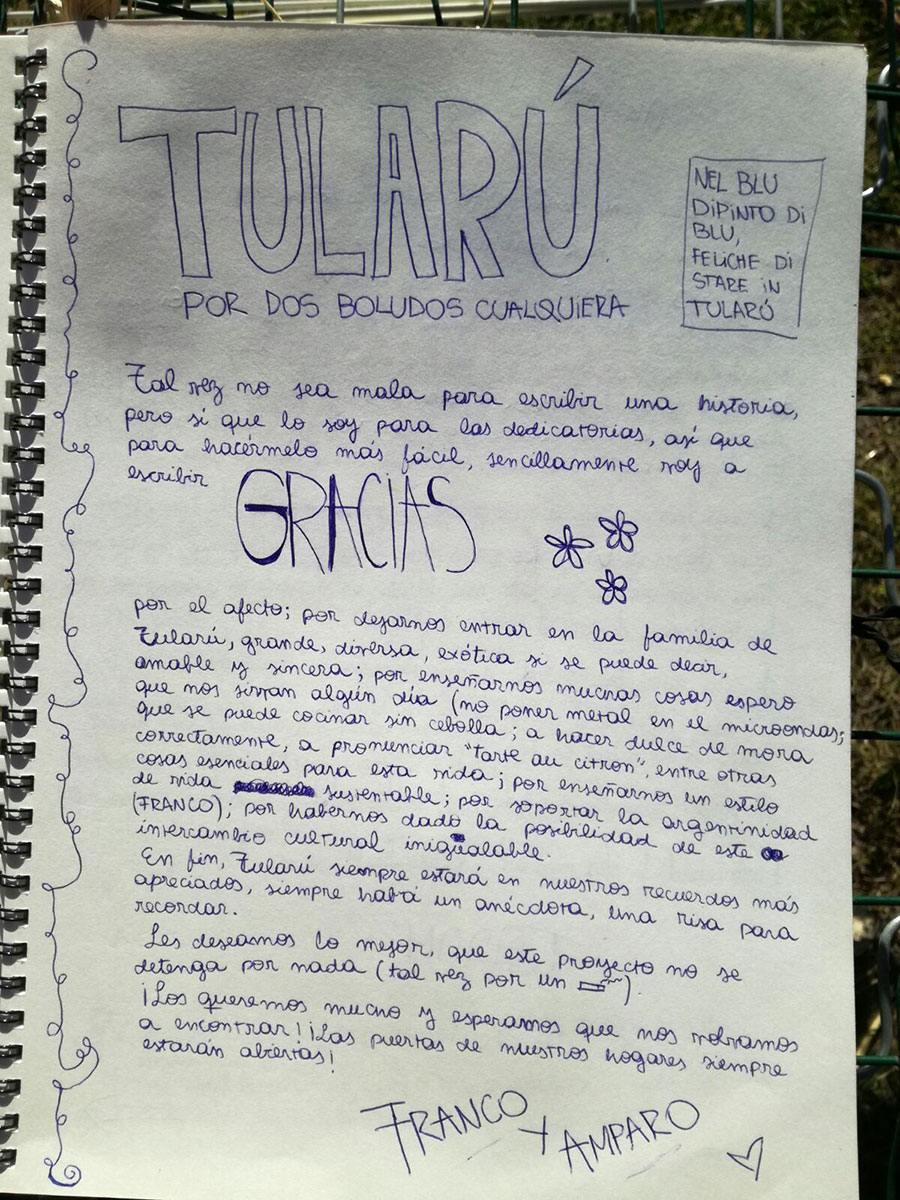 TULARÚ
POR DOS BOLUDOS CUALQUIERA
NEL BLU
DIPINTO DI
BLU,
FELICHE DI
STARE IN
TULARÚ
Tal vez no sea mala para escribir una historia,
pero sí que lo soy para las dedicatorias, así que
para hacérmelo más fácil, sencillamente voy a
escribir GRACIAS
por el afecto; por dejarnos entrar en la familia de
Tularú, grande, diversa, exótica si se puede decir,
amable y sincera; por enseñarnos muchas cosas espero
que nos sirvan algún día (no poner metal en el microondas;
que se puede cocinar sin cebolla; a hacer dulce de mora
correctamente, a pronunciar "tarte au citron", entre otras
cosas esenciales para esta vida; por enseñarnos un estilo
de vida sustentable; por soportar la argentinidad
(FRANCO); por habernos dado la posibilidad de este
intercambio cultural inigualable.
En fin, Tularú siempre estará en nuestros recuerdos más
apreciados, siempre habrá un anécdota, una risa para
recordar.
Les deseamos lo mejor, que este proyecto no se
detenga por nada (tal vez por un ).
¡Los queremos mucho y esperamos que nos volvamos
a encontrar! ¡Las puertas de nuestros hogares siempre
estarán abiertas!
FRANCO Y AMPARO